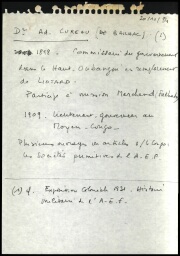 20/10/76
Dr AD. CUREAU (DE BANANES) (1)
1898. Commissaire du gouvernement
dans le Haut-Oubangui en remplacement
de LIOTARD.
Participe à mission Marchand,
1909. Lieutenant-gouverneur au
Moyen-Congo.
Plusieurs ouvrages et articles s/ Congo,
les Sociétés primitives de l'A.E.F.
(1) cf. Exposition Coloniale 1931. Histoire
militaire de l'A.E.F.